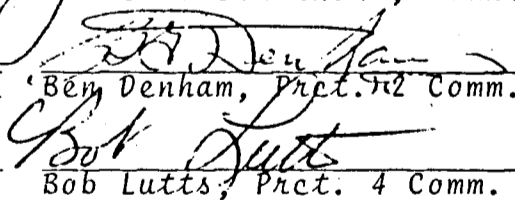 Ben Denham
Ben Denham, Prct. #2 Comm.
Bob Lutts
Bob Lutts, Prct. 4 Comm.